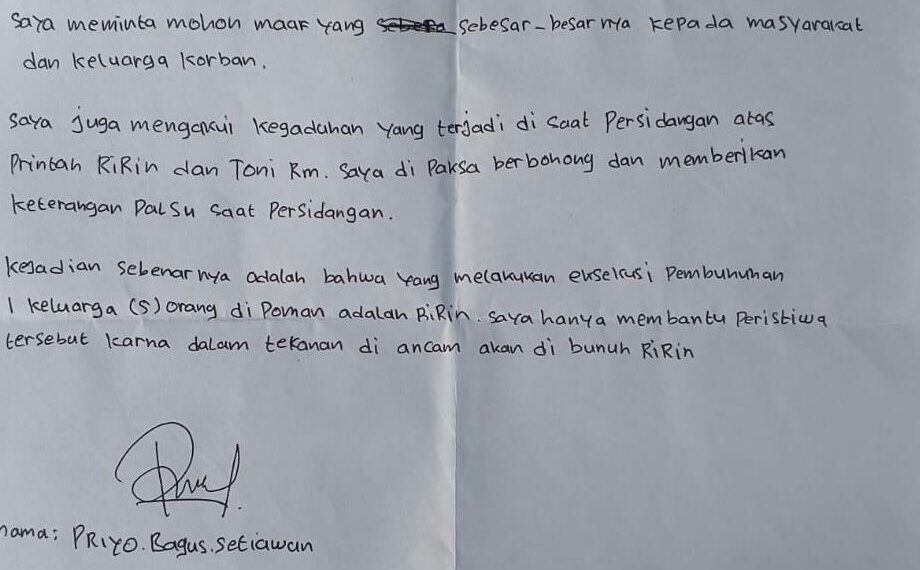 Saya meminta mohon maaf yang sebesar-besarnya kepada masyarakat
dan keluarga korban.
Saya juga mengakui kegaduhan yang terjadi di saat Persidangan atas
Printah RiRin dan Toni Rm. Saya di Paksa berbohong dan memberikan
keterangan Palsu saat Persidangan.
kejadian sebenarnya adalah bahwa yang melakukan eksekusi Pembunuhan
1 keluarga (5) orang di Poman adalah RiRin. saya hanya membantu Peristiwa
tersebut karna dalam tekanan di ancam akan di bunuh RiRin
nama: PRIYO.Bagus.Setiawan